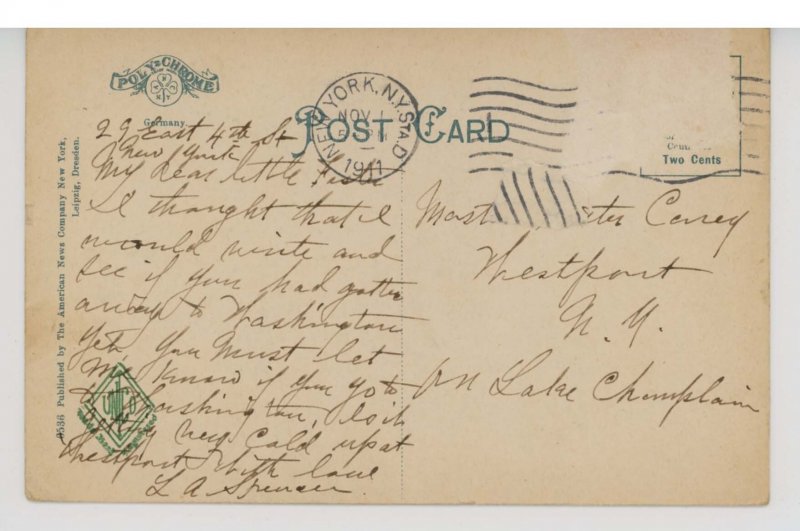 POLY=CHROME
Germany.
POST CARD
NEW YORK, N.Y. STA. D
NOV
1911
Two Cents
29 East 4th St
New York
My dear little
I thought that I
would write and
see if you had gotten
away to Washington
yet. You must let
me know if you go to
Washington, is it
very cold up at
Westport with love
L A Spencer
Carey
Westport
N. Y.
On Lake Champlain
Published by The American News Company New York,
Leipzig, Dresden.